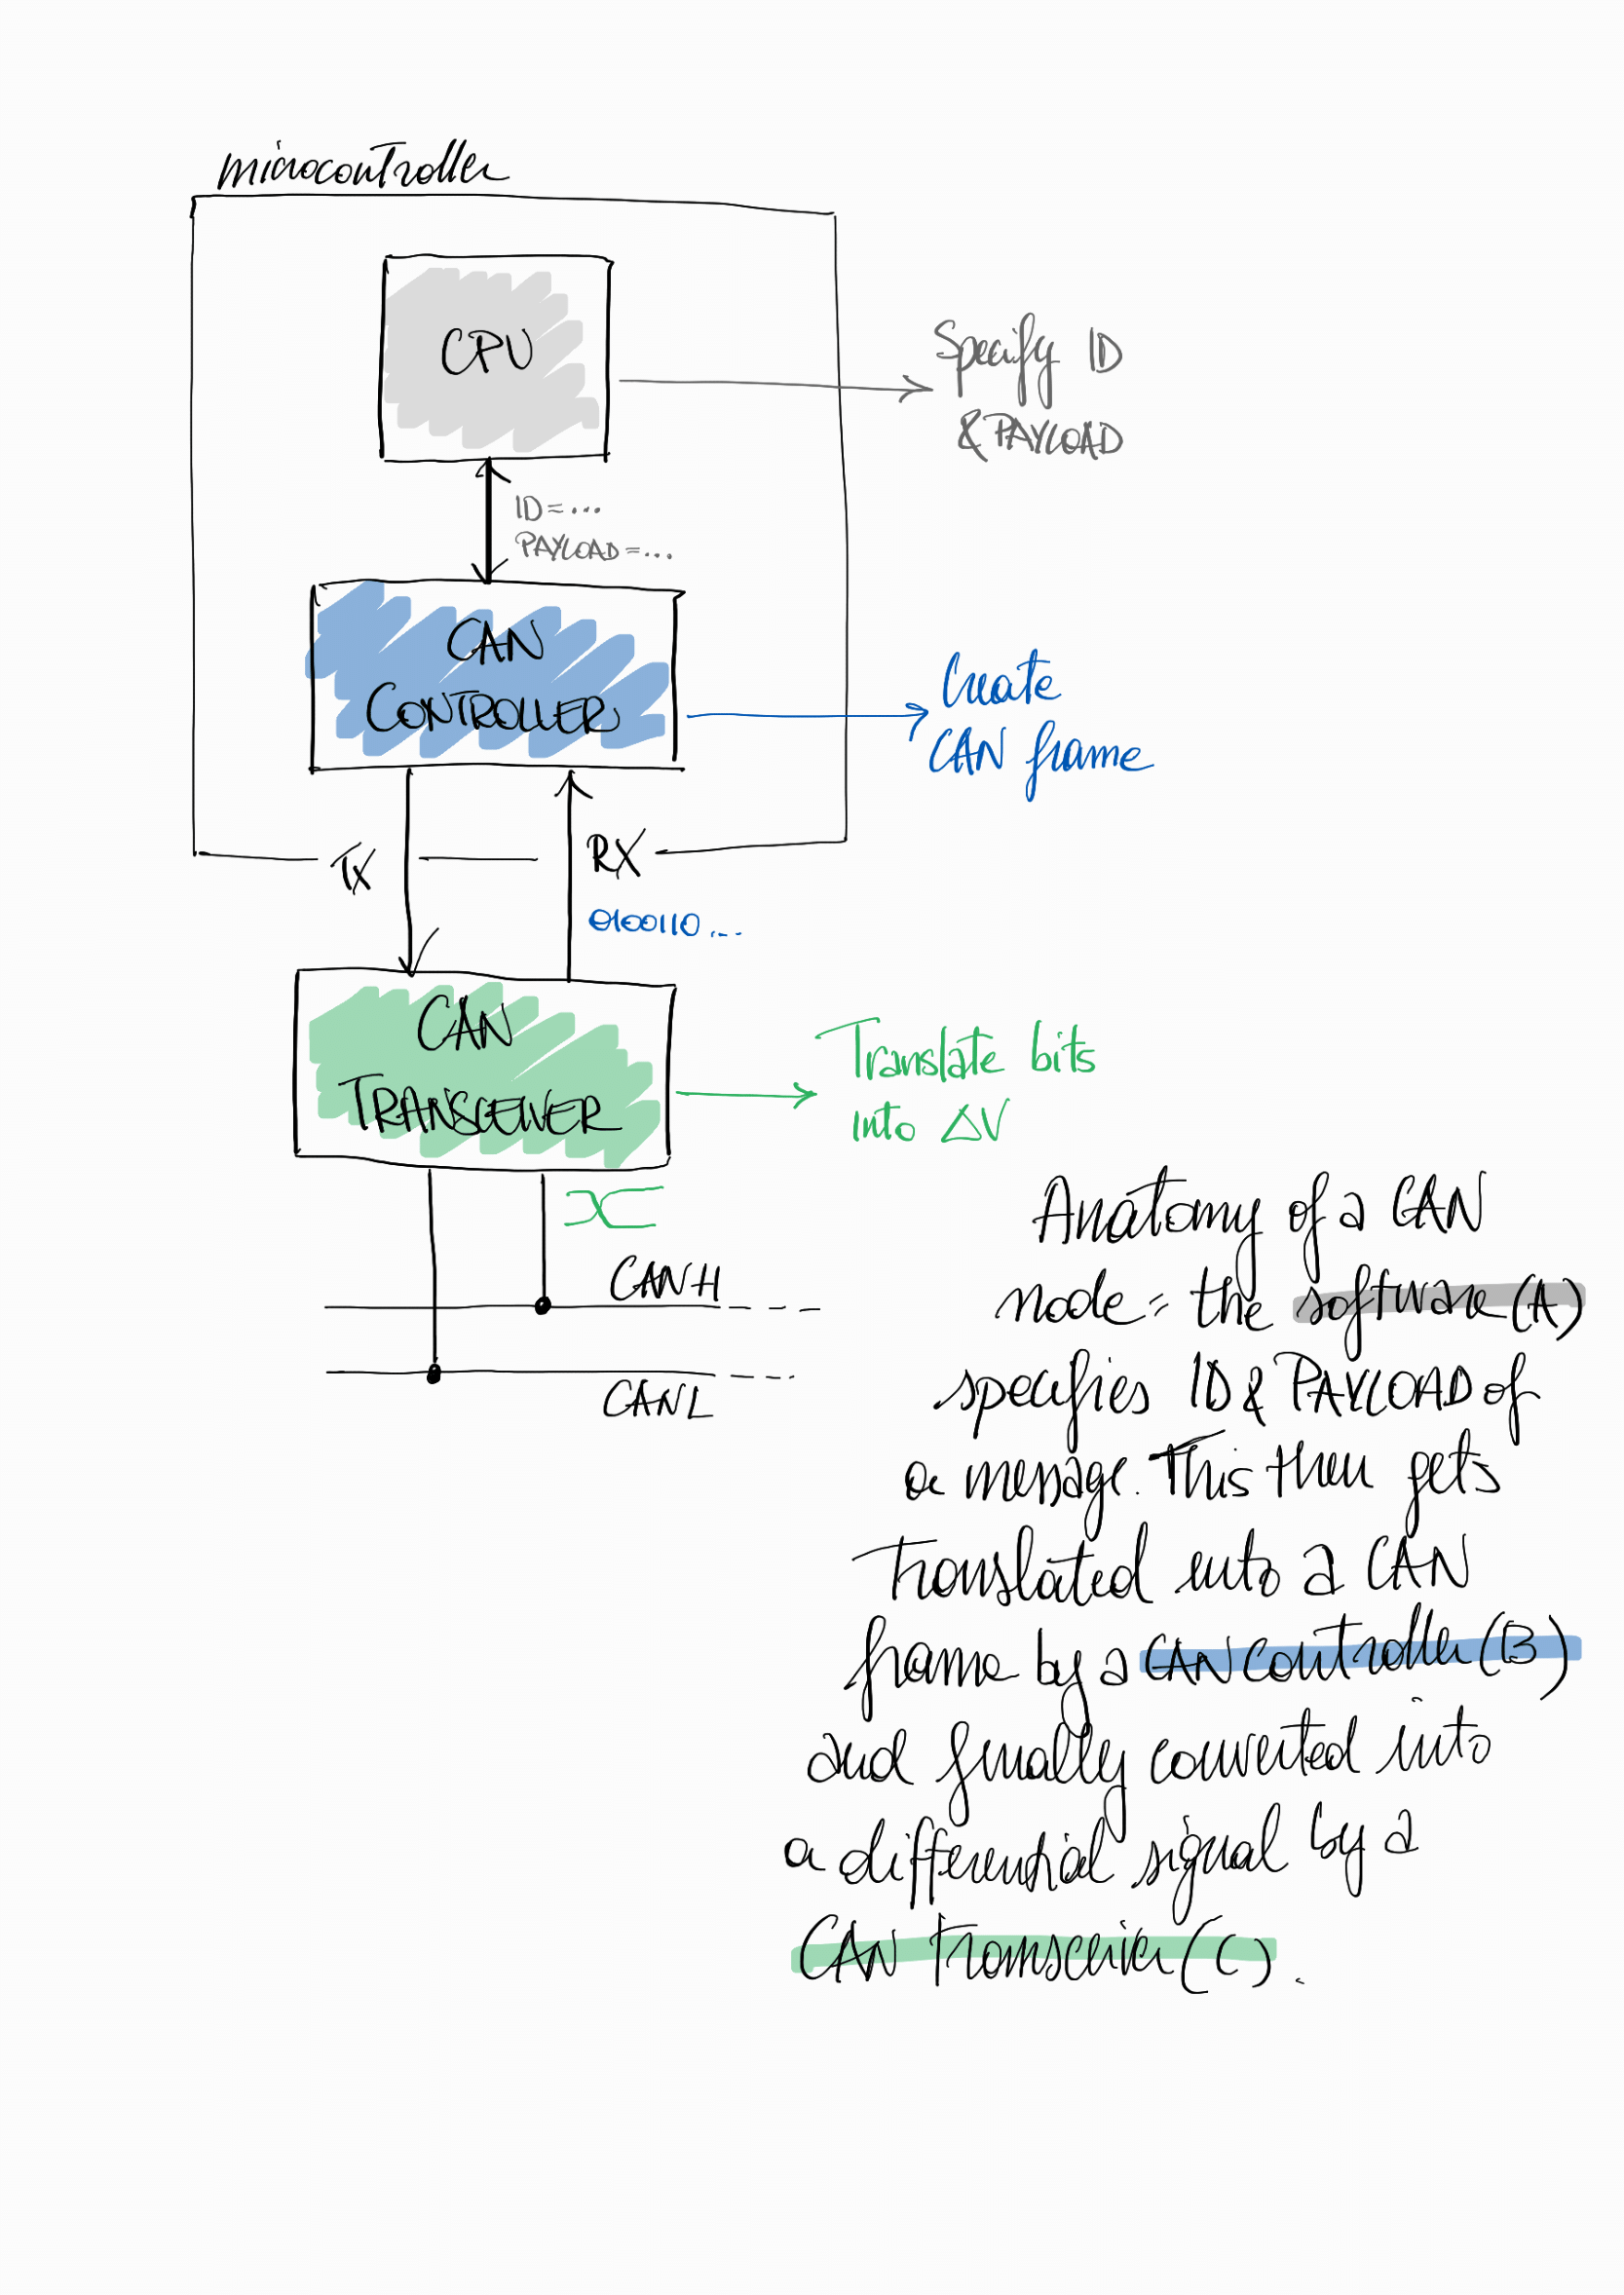 microcontroller
CPU
Specify ID
& PAYLOAD
ID = ...
PAYLOAD = ...
CAN
CONTROLLER
Create
CAN frame
TX
RX
0100110...
CAN
TRANSCEIVER
Translate bits
into ΔV
CANH
CANL
Anatomy of a CAN
node: the software (A)
specifies ID & PAYLOAD of
a message. This then gets
translated into a CAN
frame by a CAN controller (B)
and finally converted into
a differential signal by a
CAN transceiver (C).